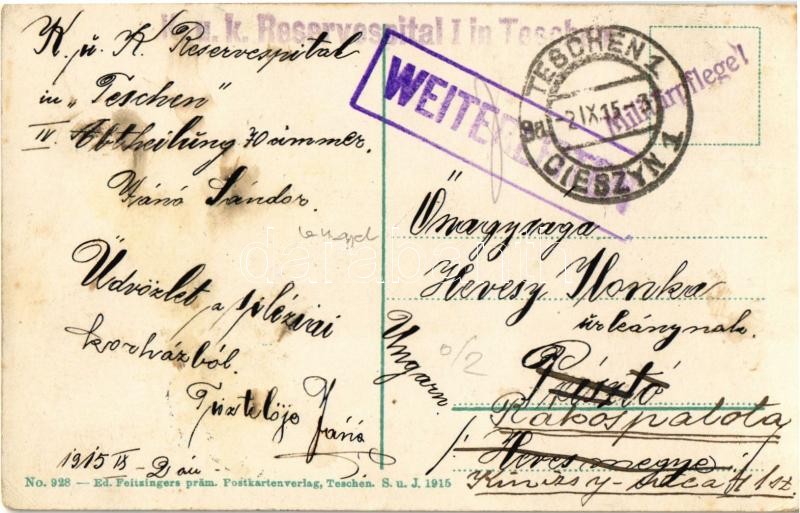 K. u. k. Reservespital I in Teschen
K. u. K. Reservespital
in "Teschen"
IV. Abtheilung 70
Jánó Sándor.
Üdvözlet a sziléziai
korházból.
Tisztelője Jánó
1915 IX - 2 án -
WEITER
TESCHEN 1
9a -2 IX.15-
CIESZYN 1
Militärpflege!
Őnagysága
Hevesy Ilonka
úrleánynak.
Pásztó
Rákospalota
Heves megye
Kinizsy-utca 41 sz.
Ungarn.
No. 928 — Ed. Feitzingers präm. Postkartenverlag, Teschen. S. u. J. 1915